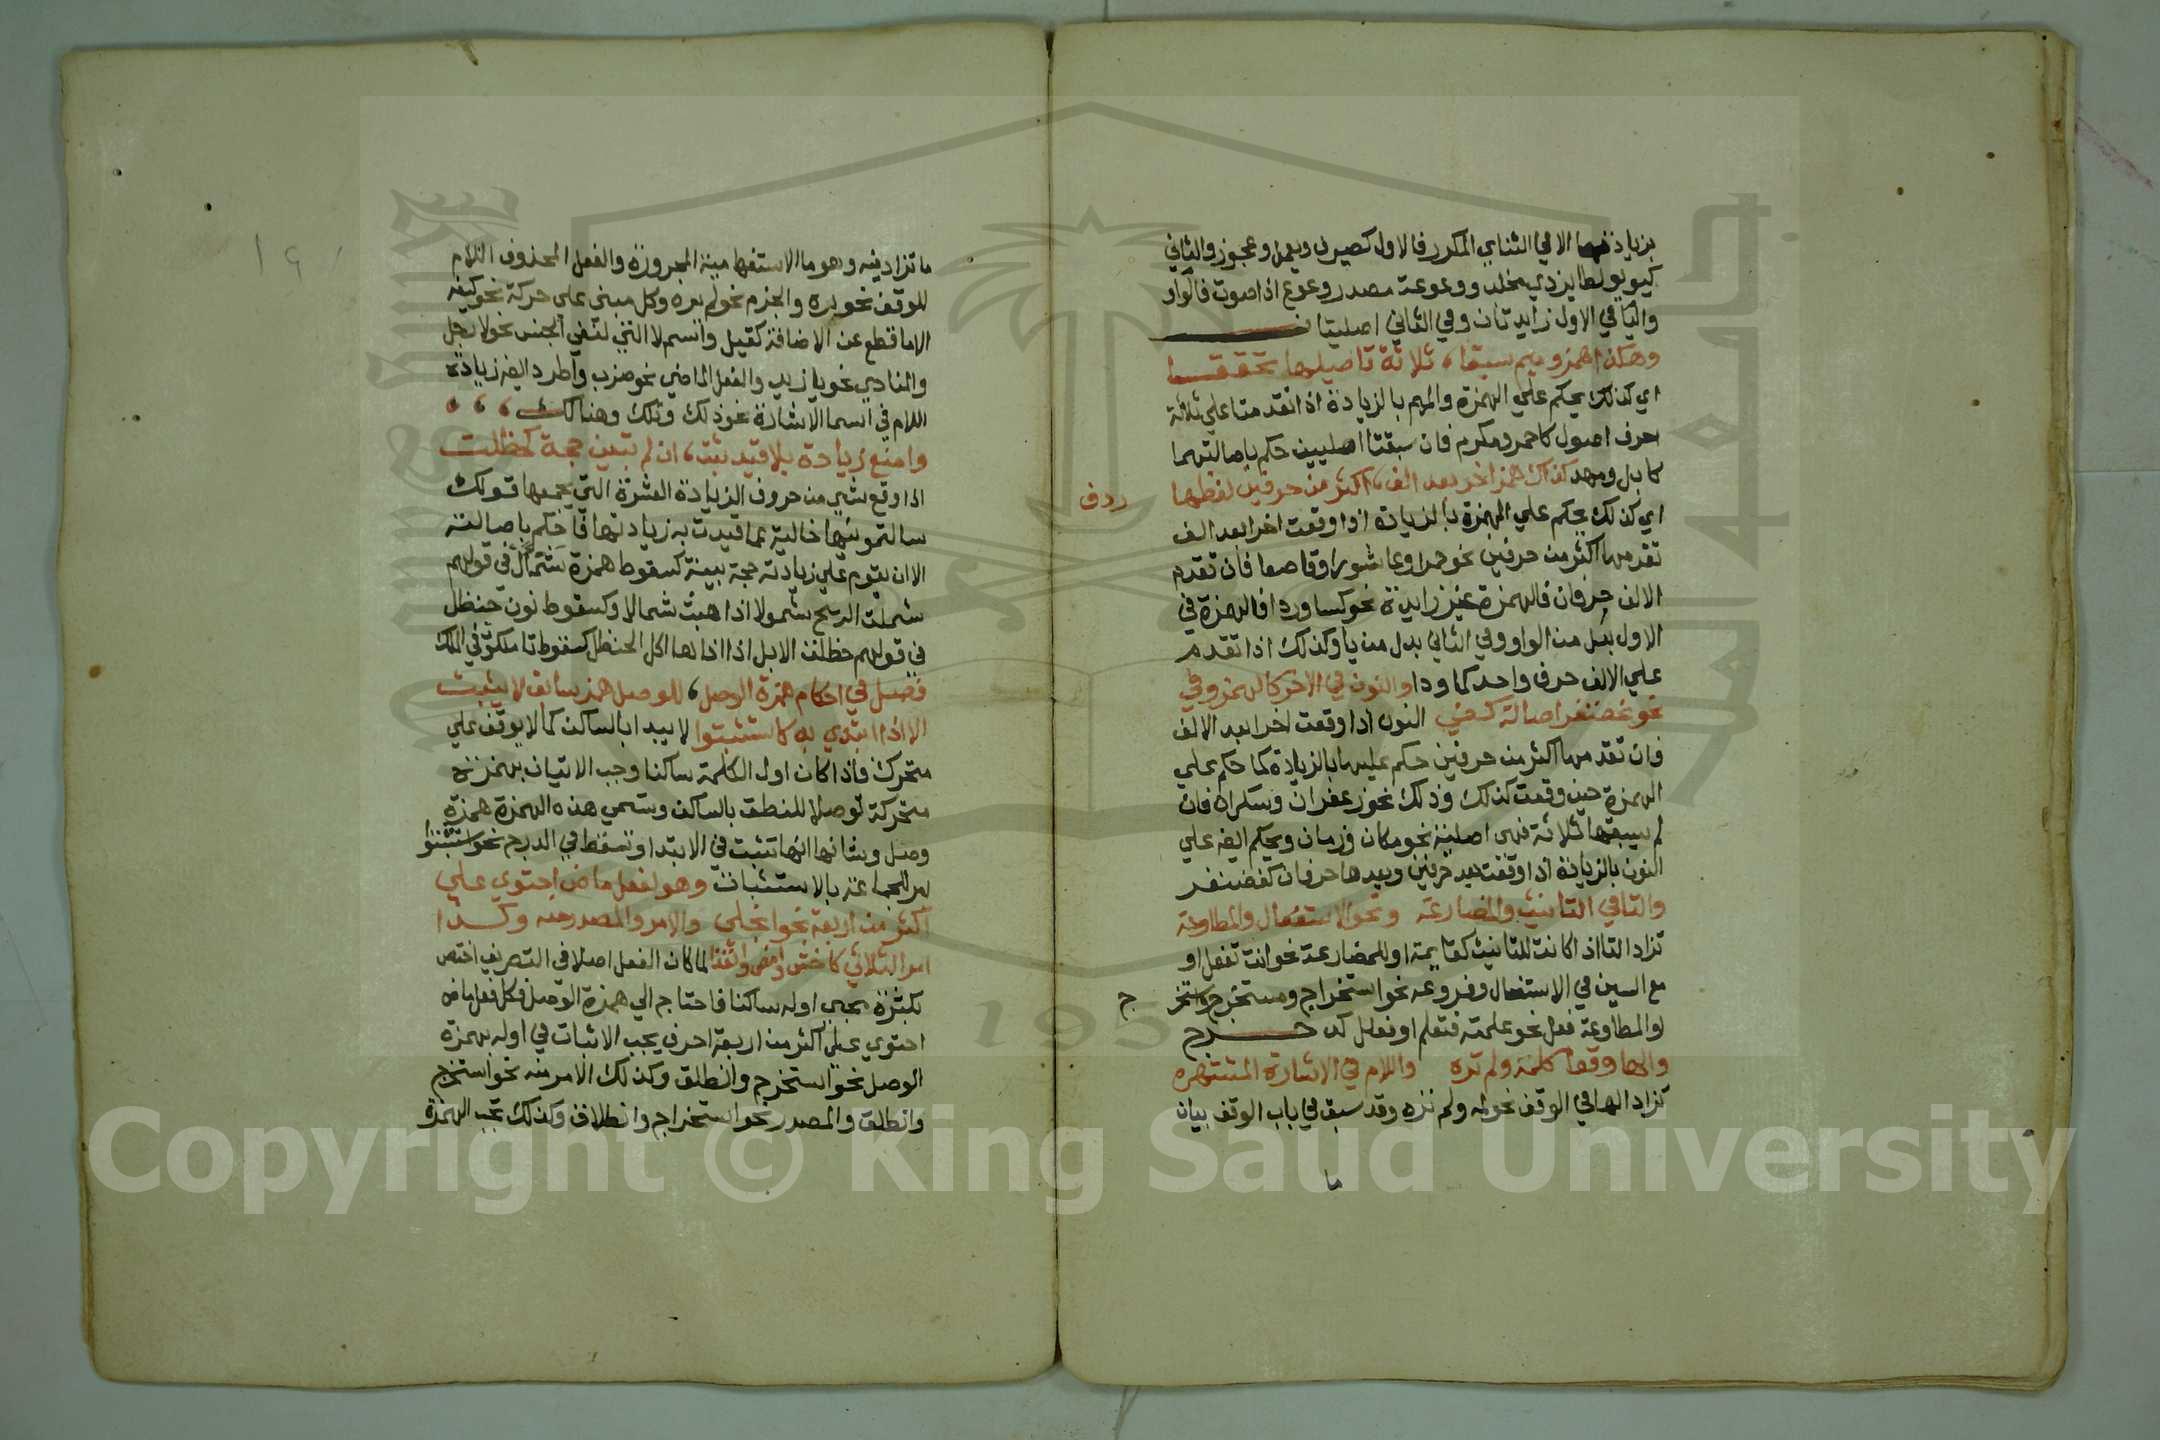 بزيادتهما الا في الثناي المكرر فالاول كصيرف ويعمل وعجوز والثاني
كيويو لطاير ذي مخلب ووعوعة مصدر وعوع اذا صوت فالواو
واليا في الاول زايدتان وفي الثاني اصليتان
وهكذا همز وميم سبقا ، ثلاثة تاصيلها تحققا
اي كذلك يحكم علي الهمزة والميم بالزيادة اذا تقدمتا علي ثلاثة
احرف اصول كاحمر ومكرم فان سبقتا اصليين حكم باصالتهما
كابل ومهد كذاك همز اخر بعد الف ، اكثر من حرفين لفظها
ردف
اي كذلك يحكم علي الهمزة بالزيادة اذا وقعت اخرا بعد الف
تقدمها اكثر من حرفين نحو حمرا وعاشورا وقاصعا فان تقدم
الالف حرفان فالهمزة غير زايدة نحو كسا وردا فالهمزة في
الاول بدل من الواو وفي الثاني بدل من يا وكذلك اذا تقدم
علي الالف حرف واحد كما ودا والنون في الاخر كالهمز وفي
نحو غضنفر اصالة كفي النون اذا وقعت اخرا بعد الالف
فان تقدمها اكثر من حرفين حكم عليها بالزيادة كما حكم علي
الهمزة حين وقعت كذلك وذلك نحو زعفران وسكران فان
لم يسبقها ثلاثة فهي اصلية نحو مكان وزمان ويحكم ايضه علي
النون بالزيادة اذا وقعت بعد حرفين وبعدها حرفان كغضنفر
والتا في التانيث والمضارعة ونحو الاستفعال والمطاوعة
تزاد التا اذا كانت للتانيث كقايمة او للمضارعة نحو انت تفعل او
مع السين في الاستفعال وفروعه نحو استخراج ومستخرج واستخر
ج
او المطاوعة فعل نحو علمته فتعلم او فعلل كد حـــرج
والها وقفا كلمة ولم تره واللام في الاشارة المشتهره
تزاد الها في الوقف نحو له ولم تره وقد سبق في باب الوقف بيان
ما
ما تزاد فيه وهو ما الاستفهامية المجرورة والفعل المحذوف اللام
للوقف نحو ره والجزم نحو لم يره وكل مبني علي حركة نحو كيفه
الا ما قطع عن الاضافة كقبل واسم لا التي لنفي الجنس نحو لا رجل
والمنادي نحو يا زيد والفعل الماضي نحو ضرب واطرد ايضه زيادة
اللام في اسما الاشارة نحو ذلك وتلك وهنالك
وامنع زيادة بلا قيد ثبت ، ان لم تبين حجة كحظلت
اذا وقع شي من حروف الزيادة العشرة التي يجمعها قولك
سالتمونيها خالية عما قيدت به زيادتها فاحكم باصالته
الا ان يقوم علي زيادته حجة بينة كسقوط همزة شمأل في قولهم
شملت الريح شمولا اذا هبت شمالا وكسقوط نون حنظل
في قولهم حظلت الابل اذا اذاها اكل الحنظل كسقوط تا ملكوت في الملك
فصل في احكام همزة الوصل ، للوصل همز سابق لا يثبت
الا اذا ابتدي به كاستثبتوا لا يبدا بالساكن كما لا يوقف علي
متحرك فاذا كان اول الكلمة ساكنا وجب الاتيان بهمزة
متحركة توصلا للنطق بالساكن وتسمي هذه الهمزة همزة
وصل وشانها انها تثبت في الابتدا وتسقط في الدرج نحو استثبتوا
امر للجماعة بالاستثبات وهو لفعل ماض احتوي علي
اكثر من اربعة نحو انجلي والامر والمصدر منه وكــذا
امر الثلاثي كاخش وامض وانفذا لما كان الفعل اصلا في التصريف اختص
بكثرة مجي اوله ساكنا فاحتاج الي همزة الوصل فكل فعل ماض
احتوي علي اكثر من اربعة احرف يجب الاثبات في اوله بهمزة
الوصل نحو استخرج وانطلق وكذلك الامر منه نحو استخرج
وانطلق والمصدر نحو استخراج وانطلاق وكذلك تجب الهمزة
Copyright © King Saud University